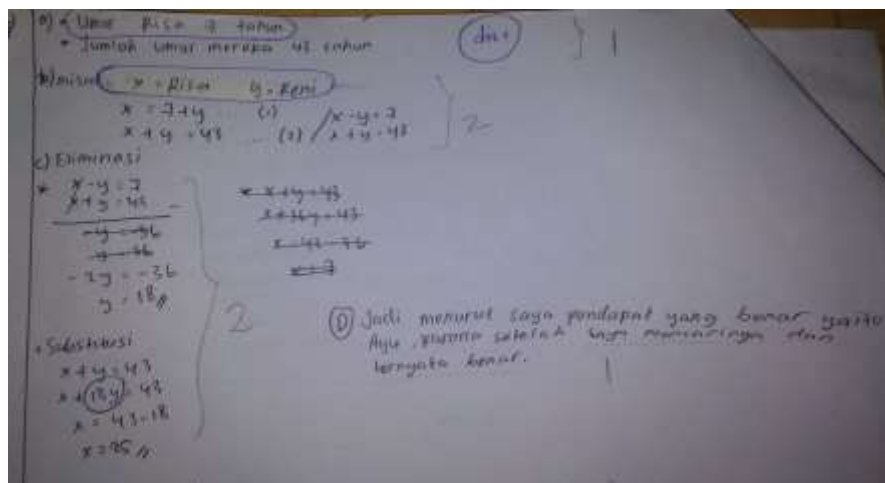 a) • Umur Risa 7 tahun
• Jumlah umur mereka 43 tahun
dit
1
b) misal = x = Risa y = Reni
x = 7+y ... (1) / x-y=7
x+y = 43 ... (2) / x+y=43
2
c) Eliminasi
* x-y=7
x+y=43 -
-y=-36
y=36
-2y = -36
y = 18 //
* x+y=43
x+36y=43
x=43-36
x=7
2
• Substitusi
x+y=43
x+18y=43
x = 43-18
x=25 //
D Jadi menurut saya pendapat yang benar yaitu
Ayu, karena setelah saya mencarinya dan
ternyata benar.
1